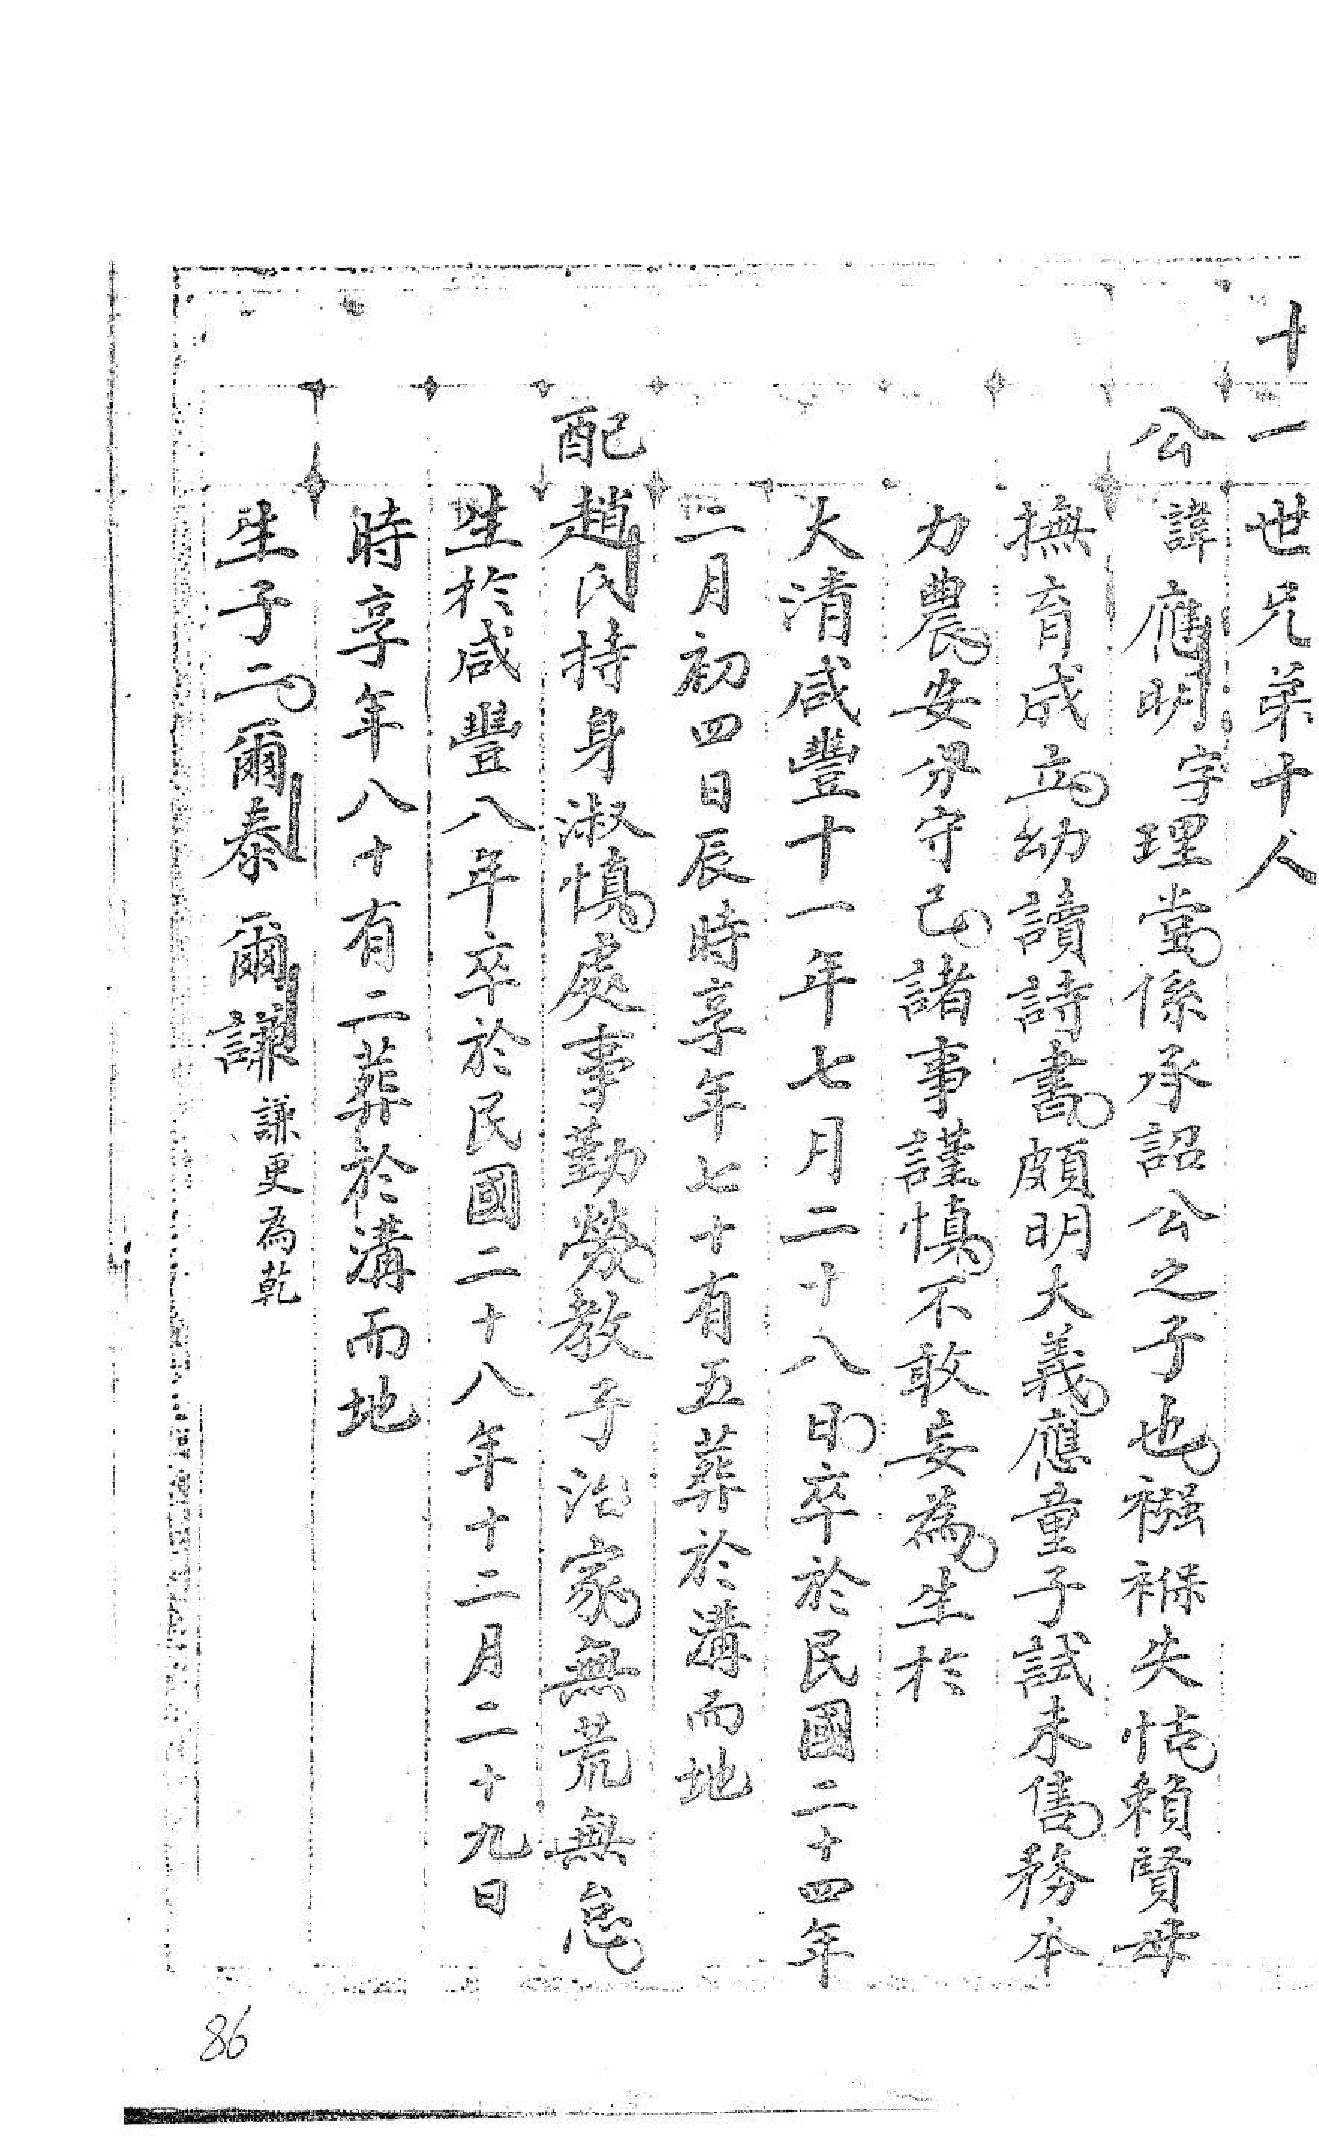 十一世兄弟十人
公諱應明字理堂係承詔公之子也襁褓失怙賴賢母
撫育成立幼讀詩書頗明大義應童子試未售務本
力農安分守己諸事謹慎不敢妄為生於
大清咸豐十一年七月二十八日卒於民國二十四年
三月初四日辰時享年七十有五葬於溝而地
配趙氏持身淑慎處事勤勞教子治家無荒無怠
生於咸豐八年卒於民國二十八年十二月二十九日
時享年八十有二葬於溝而地
生子二爾泰 爾謙 謙更為乾
86